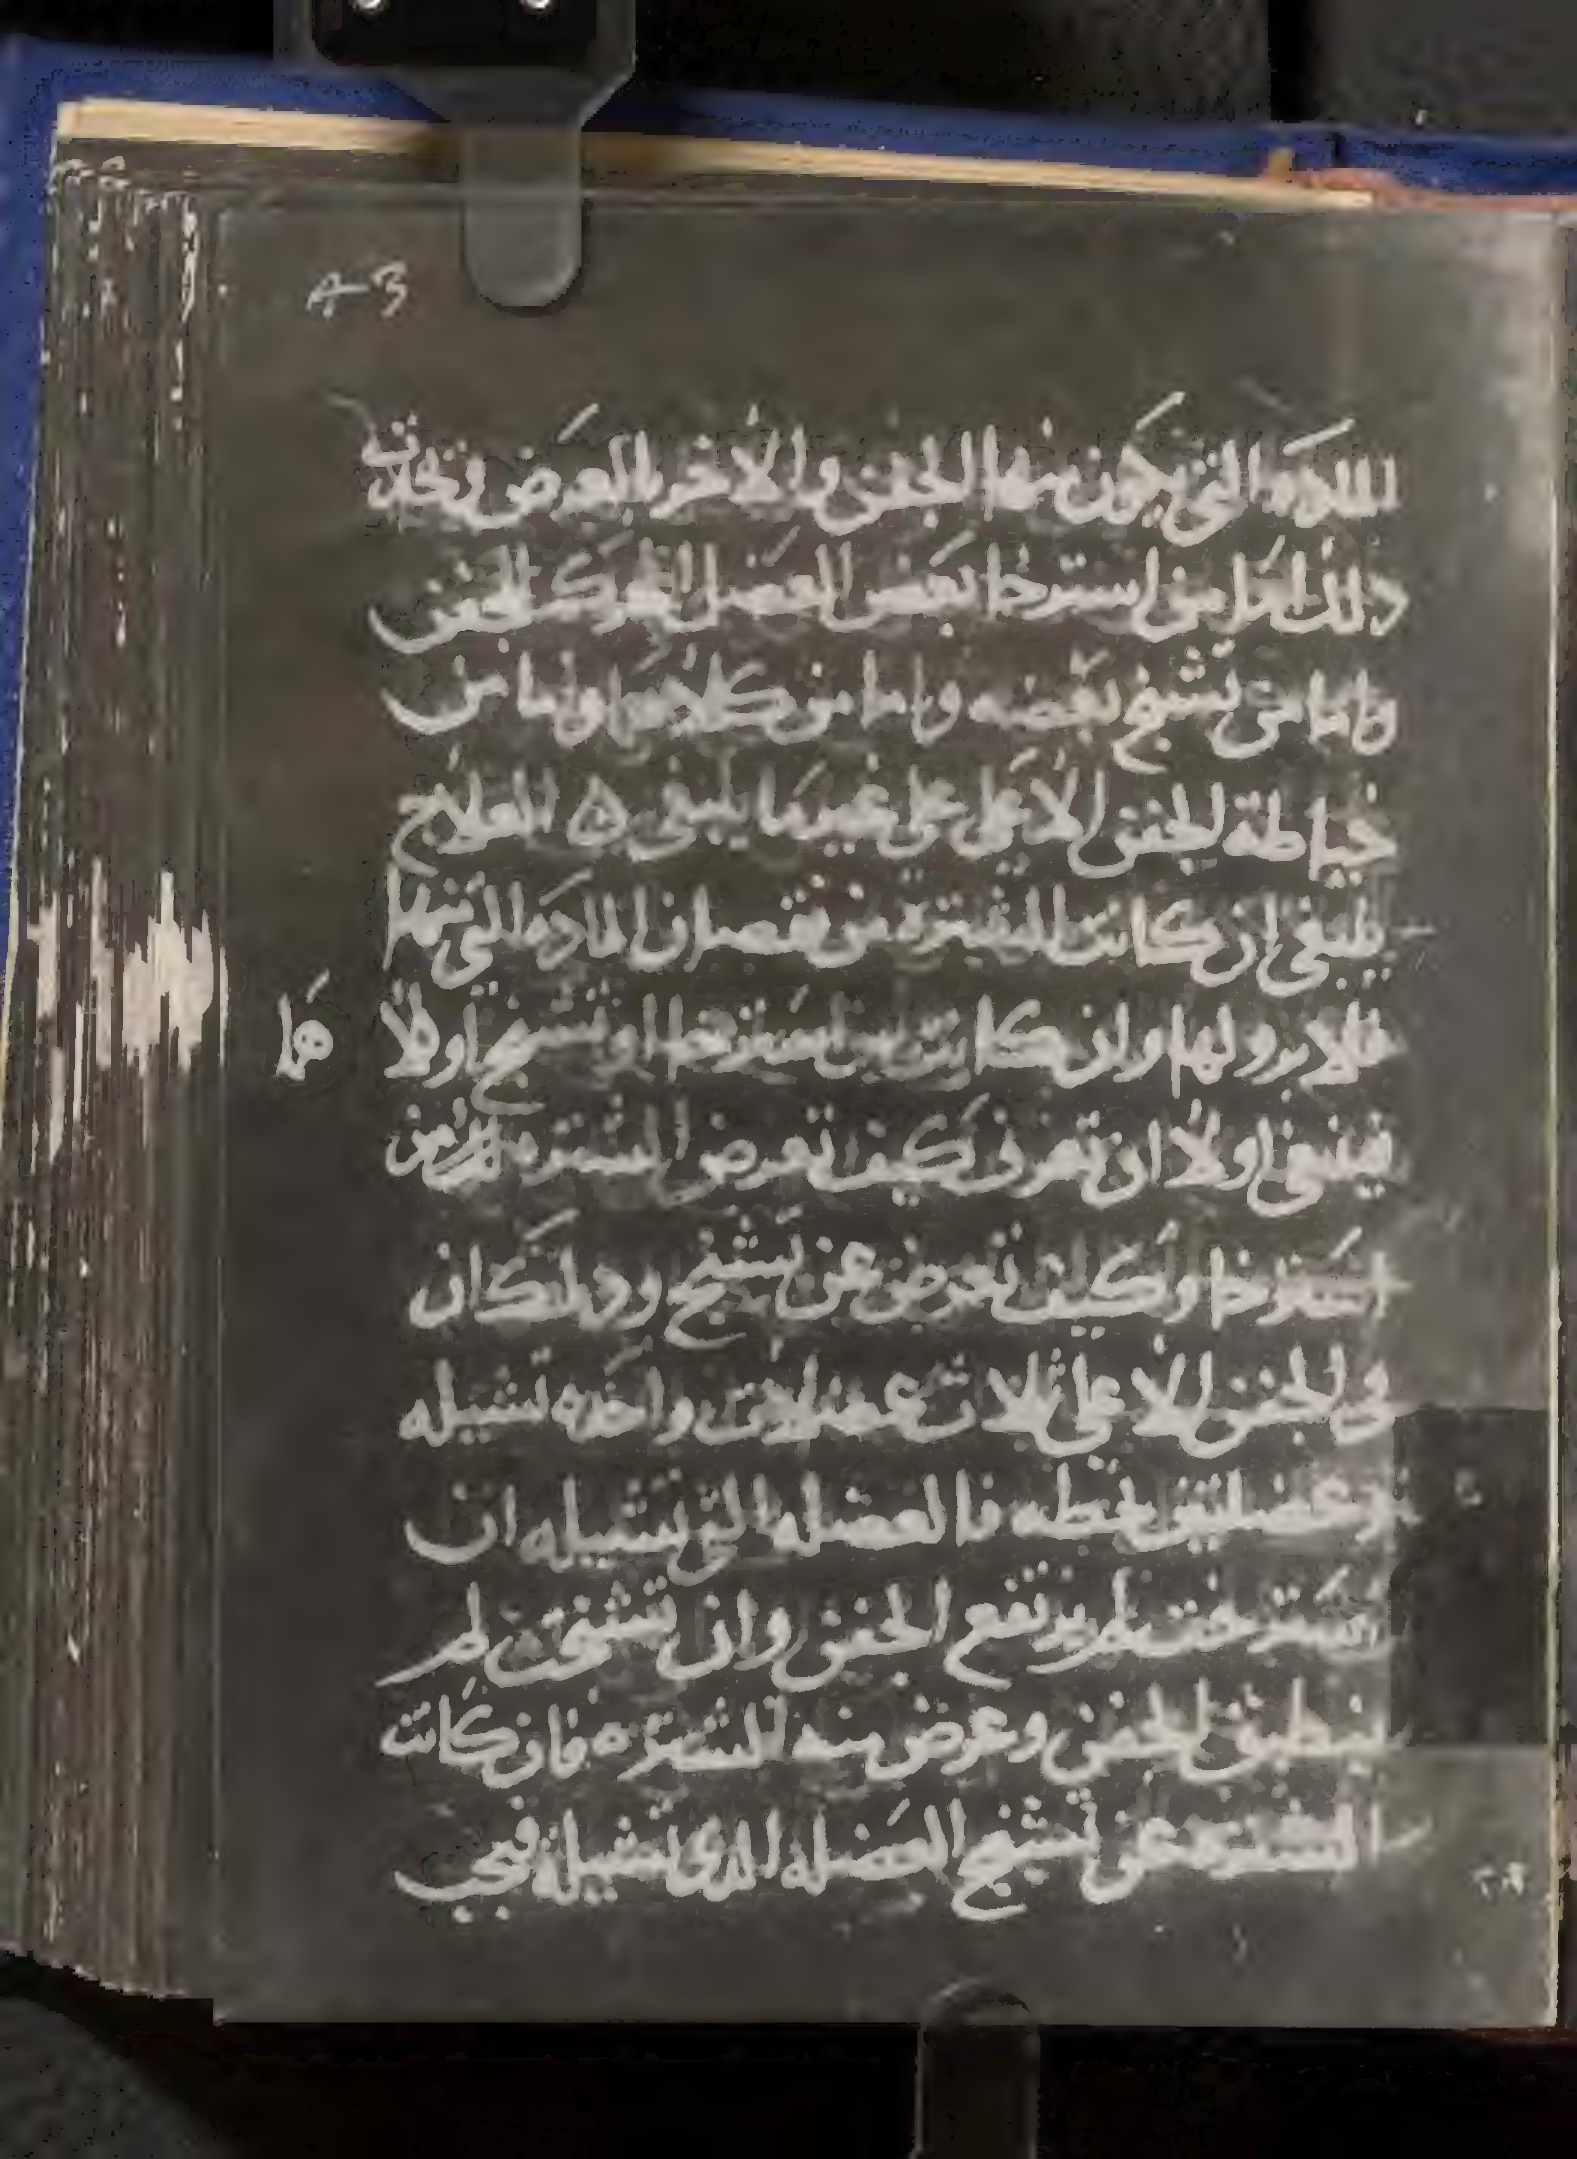 للمادة التي يكون منها الجفن والاخر بالعرض وتحدث
ذلك اما من استرخا بعض العضل المحرك للجفن
واما من تشنج بعضه واما من كلاهما واما من
خياطة الجفن الاعلى على غير ما ينبغي ه العلاج
ينبغي ان كانت الشترة من نقصان المادة التي منها
فلا برو لها وان كانت من استرخا او تشنج اولا
ها
فينبغي اولا ان تعرف كيف تعرض الشترة من
استرخا وكيف تعرض عن تشنج وذلك ان
في الجفن الاعلى ثلاث عضلات واحدة تشيله
وعضلتين تحطه فالعضلة التي تشيله ان
استرخت لم يرتفع الجفن وان تشنجت لم
ينطبق الجفن وعرض منه الشترة فان كانت
الشترة عن تشنج العضلة الذي تشيله فيجب